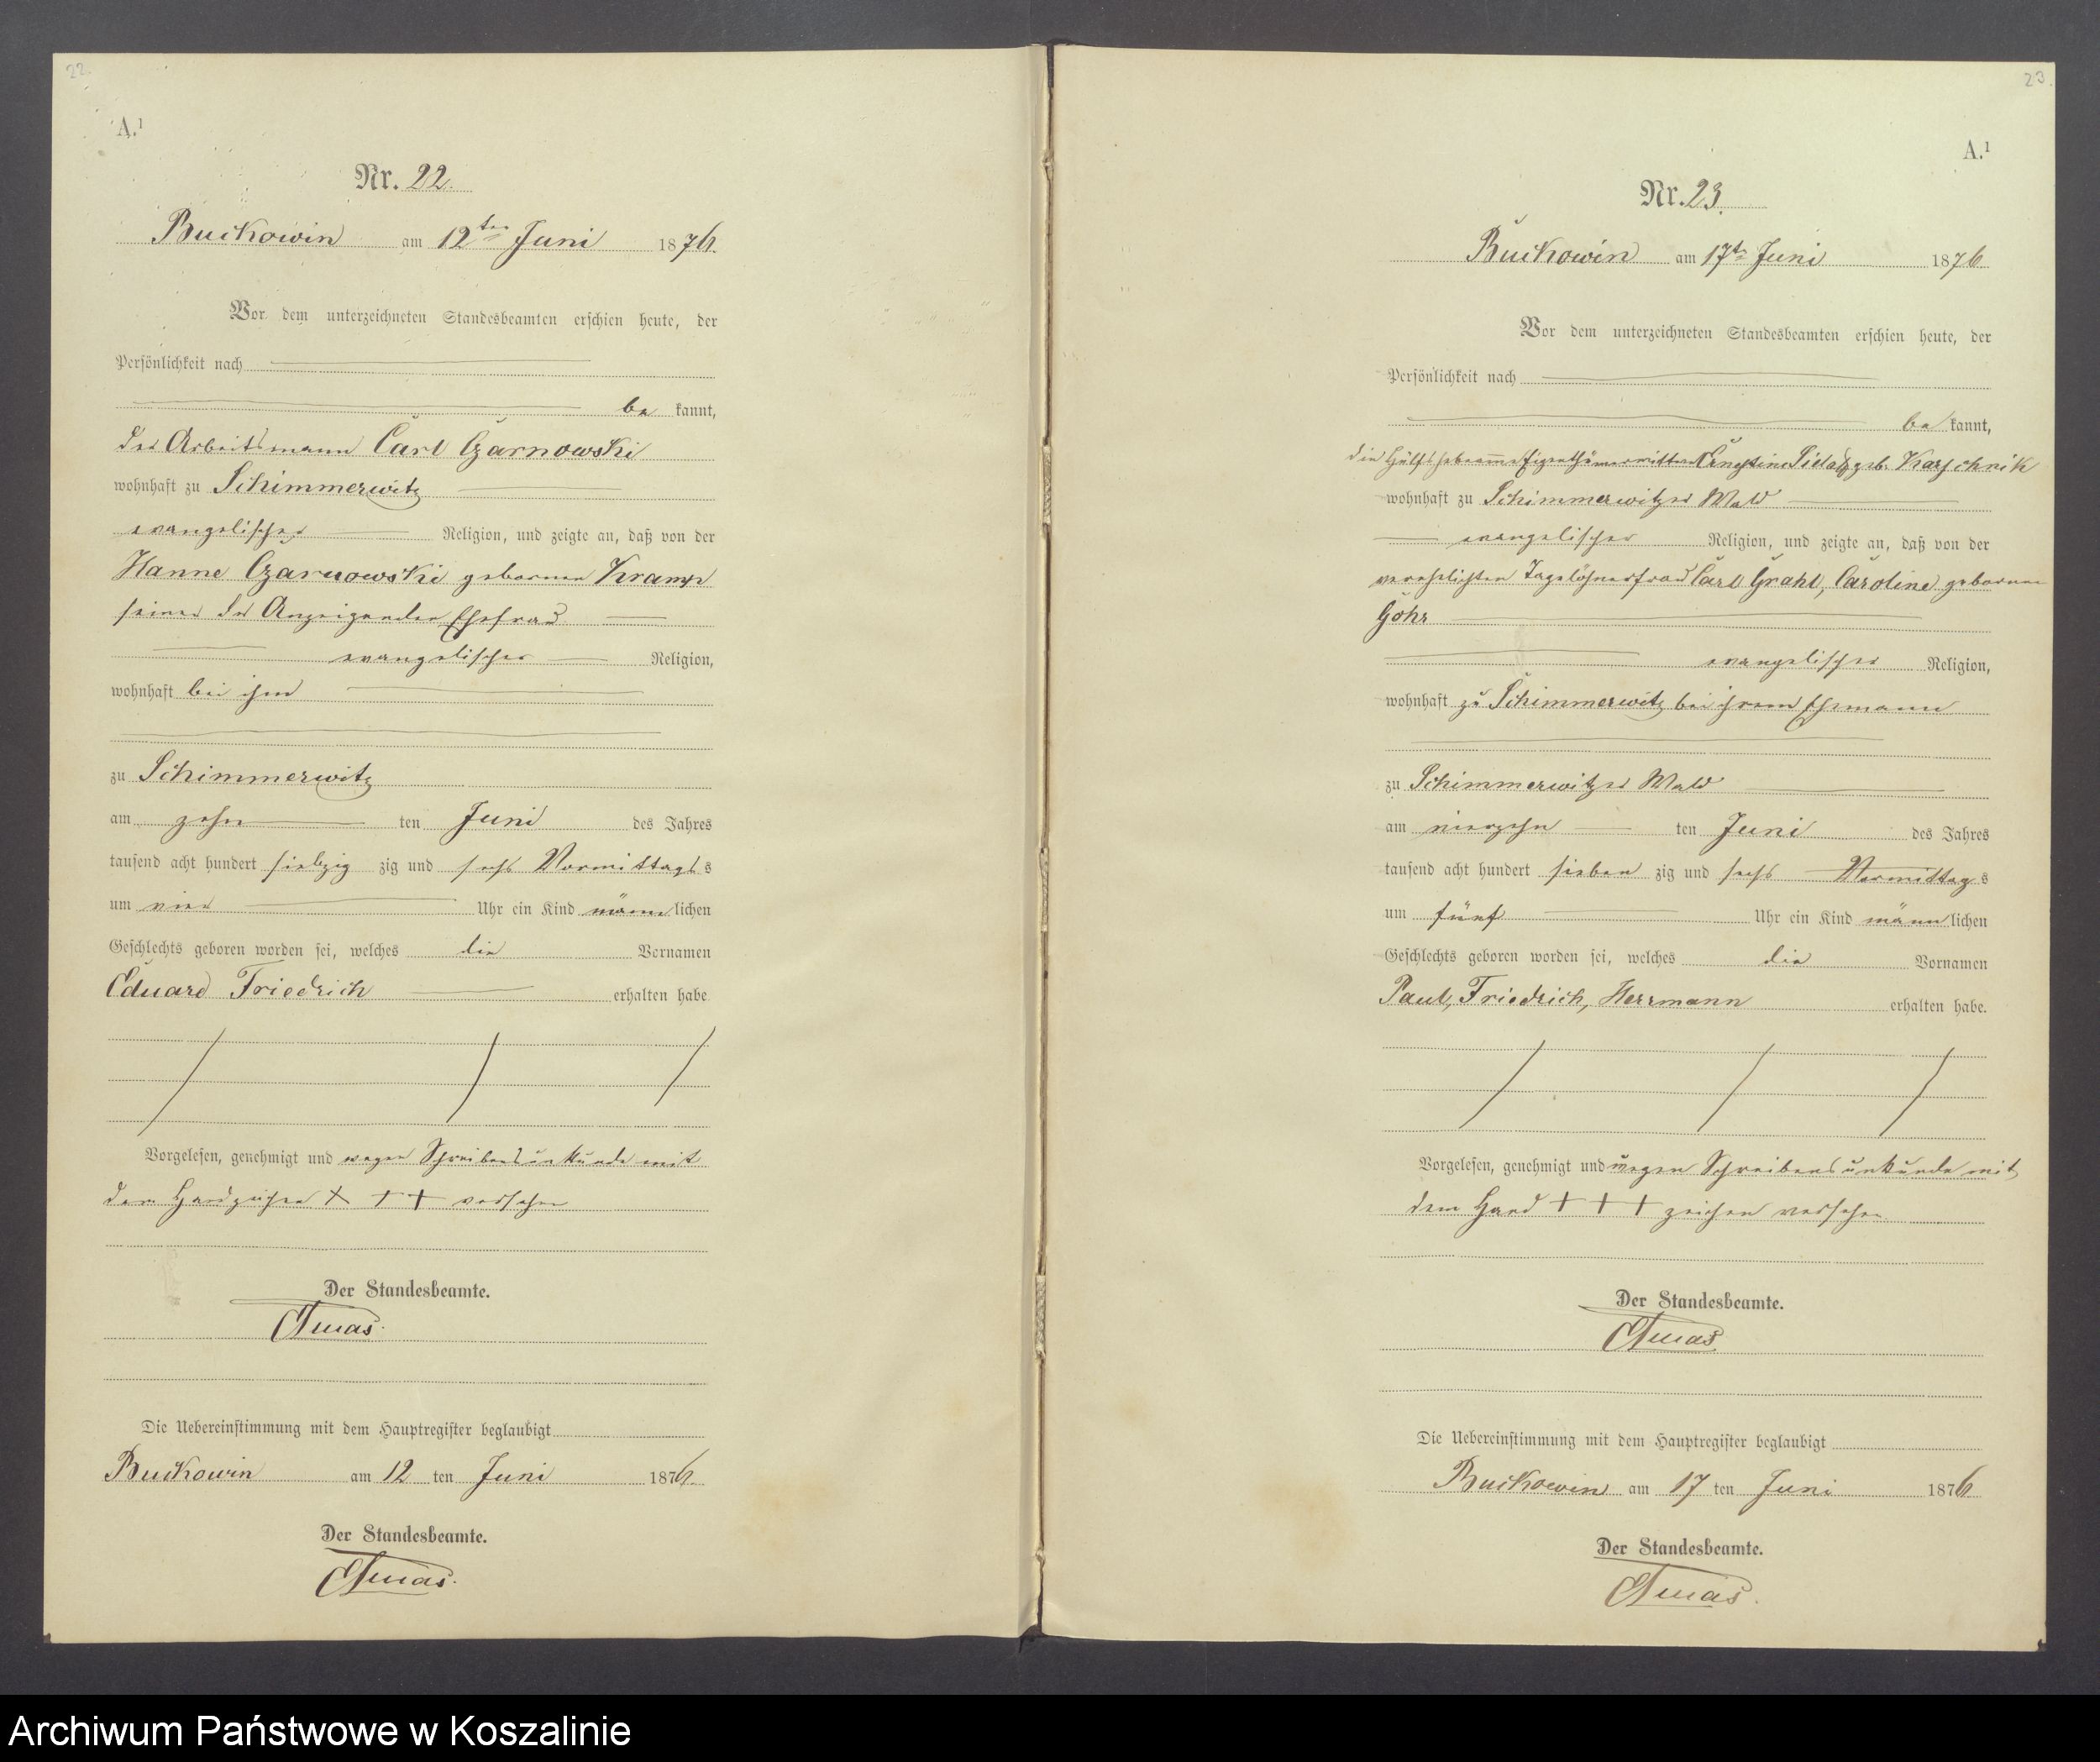 22.
A.¹
Nr. 22.
Buckowin am 12ten Juni 1876.
Vor dem unterzeichneten Standesbeamten erschien heute, der
Persönlichkeit nach
be kannt,
der Arbeitsmann Carl Czarnowski
wohnhaft zu Schimmerwitz
evangelischer Religion, und zeigte an, daß von der
Hanne Czarnowski geborenen Kramp
seiner des Anzeigenden Ehefrau
evangelischer Religion,
wohnhaft bei ihm
zu Schimmerwitz
am zehn ten Juni des Jahres
tausend acht hundert siebzig zig und sechs Vormittags s
um vier Uhr ein Kind männ lichen
Geschlechts geboren worden sei, welches die Vornamen
Eduard Friedrich erhalten habe
Vorgelesen, genehmigt und wegen Schreibensunkunde mit
dem Handzeichen + + + versehen
Der Standesbeamte.
Die Uebereinstimmung mit dem Hauptregister beglaubigt
Buckowin am 12 ten Juni 1876.
Der Standesbeamte.
23.
A.¹
Nr. 23.
Buckowin am 17t Juni 1876
Vor dem unterzeichneten Standesbeamten erschien heute, der
Persönlichkeit nach
be kannt,
die Hülfshebeamme Ernestine geb. Karschnik
wohnhaft zu Schimmerwitzer Wald
evangelischer Religion, und zeigte an, daß von der
verehelichten Tagelöhnerfrau Carl Grahl, Caroline geborene
Göhr
evangelischer Religion,
wohnhaft zu Schimmerwitz bei ihrem Ehemann
zu Schimmerwitzer Wald
am vierzehn ten Juni des Jahres
tausend acht hundert sieben zig und sechs Vormittag s
um fünf Uhr ein Kind männ lichen
Geschlechts geboren worden sei, welches die Vornamen
Paul, Friedrich, Herrmann erhalten habe.
Vorgelesen, genehmigt und wegen Schreibensunkunde mit
dem Hand + + + zeichen versehen
Der Standesbeamte.
Die Uebereinstimmung mit dem Hauptregister beglaubigt
Buckowin am 17 ten Juni 1876
Der Standesbeamte.
Archiwum Państwowe w Koszalinie